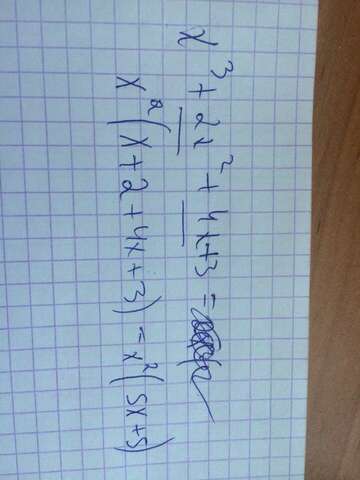 x³ + 2x² + 4x + 3 =
x²(x + 2 + 4x + 3) = x²(5x + 5)